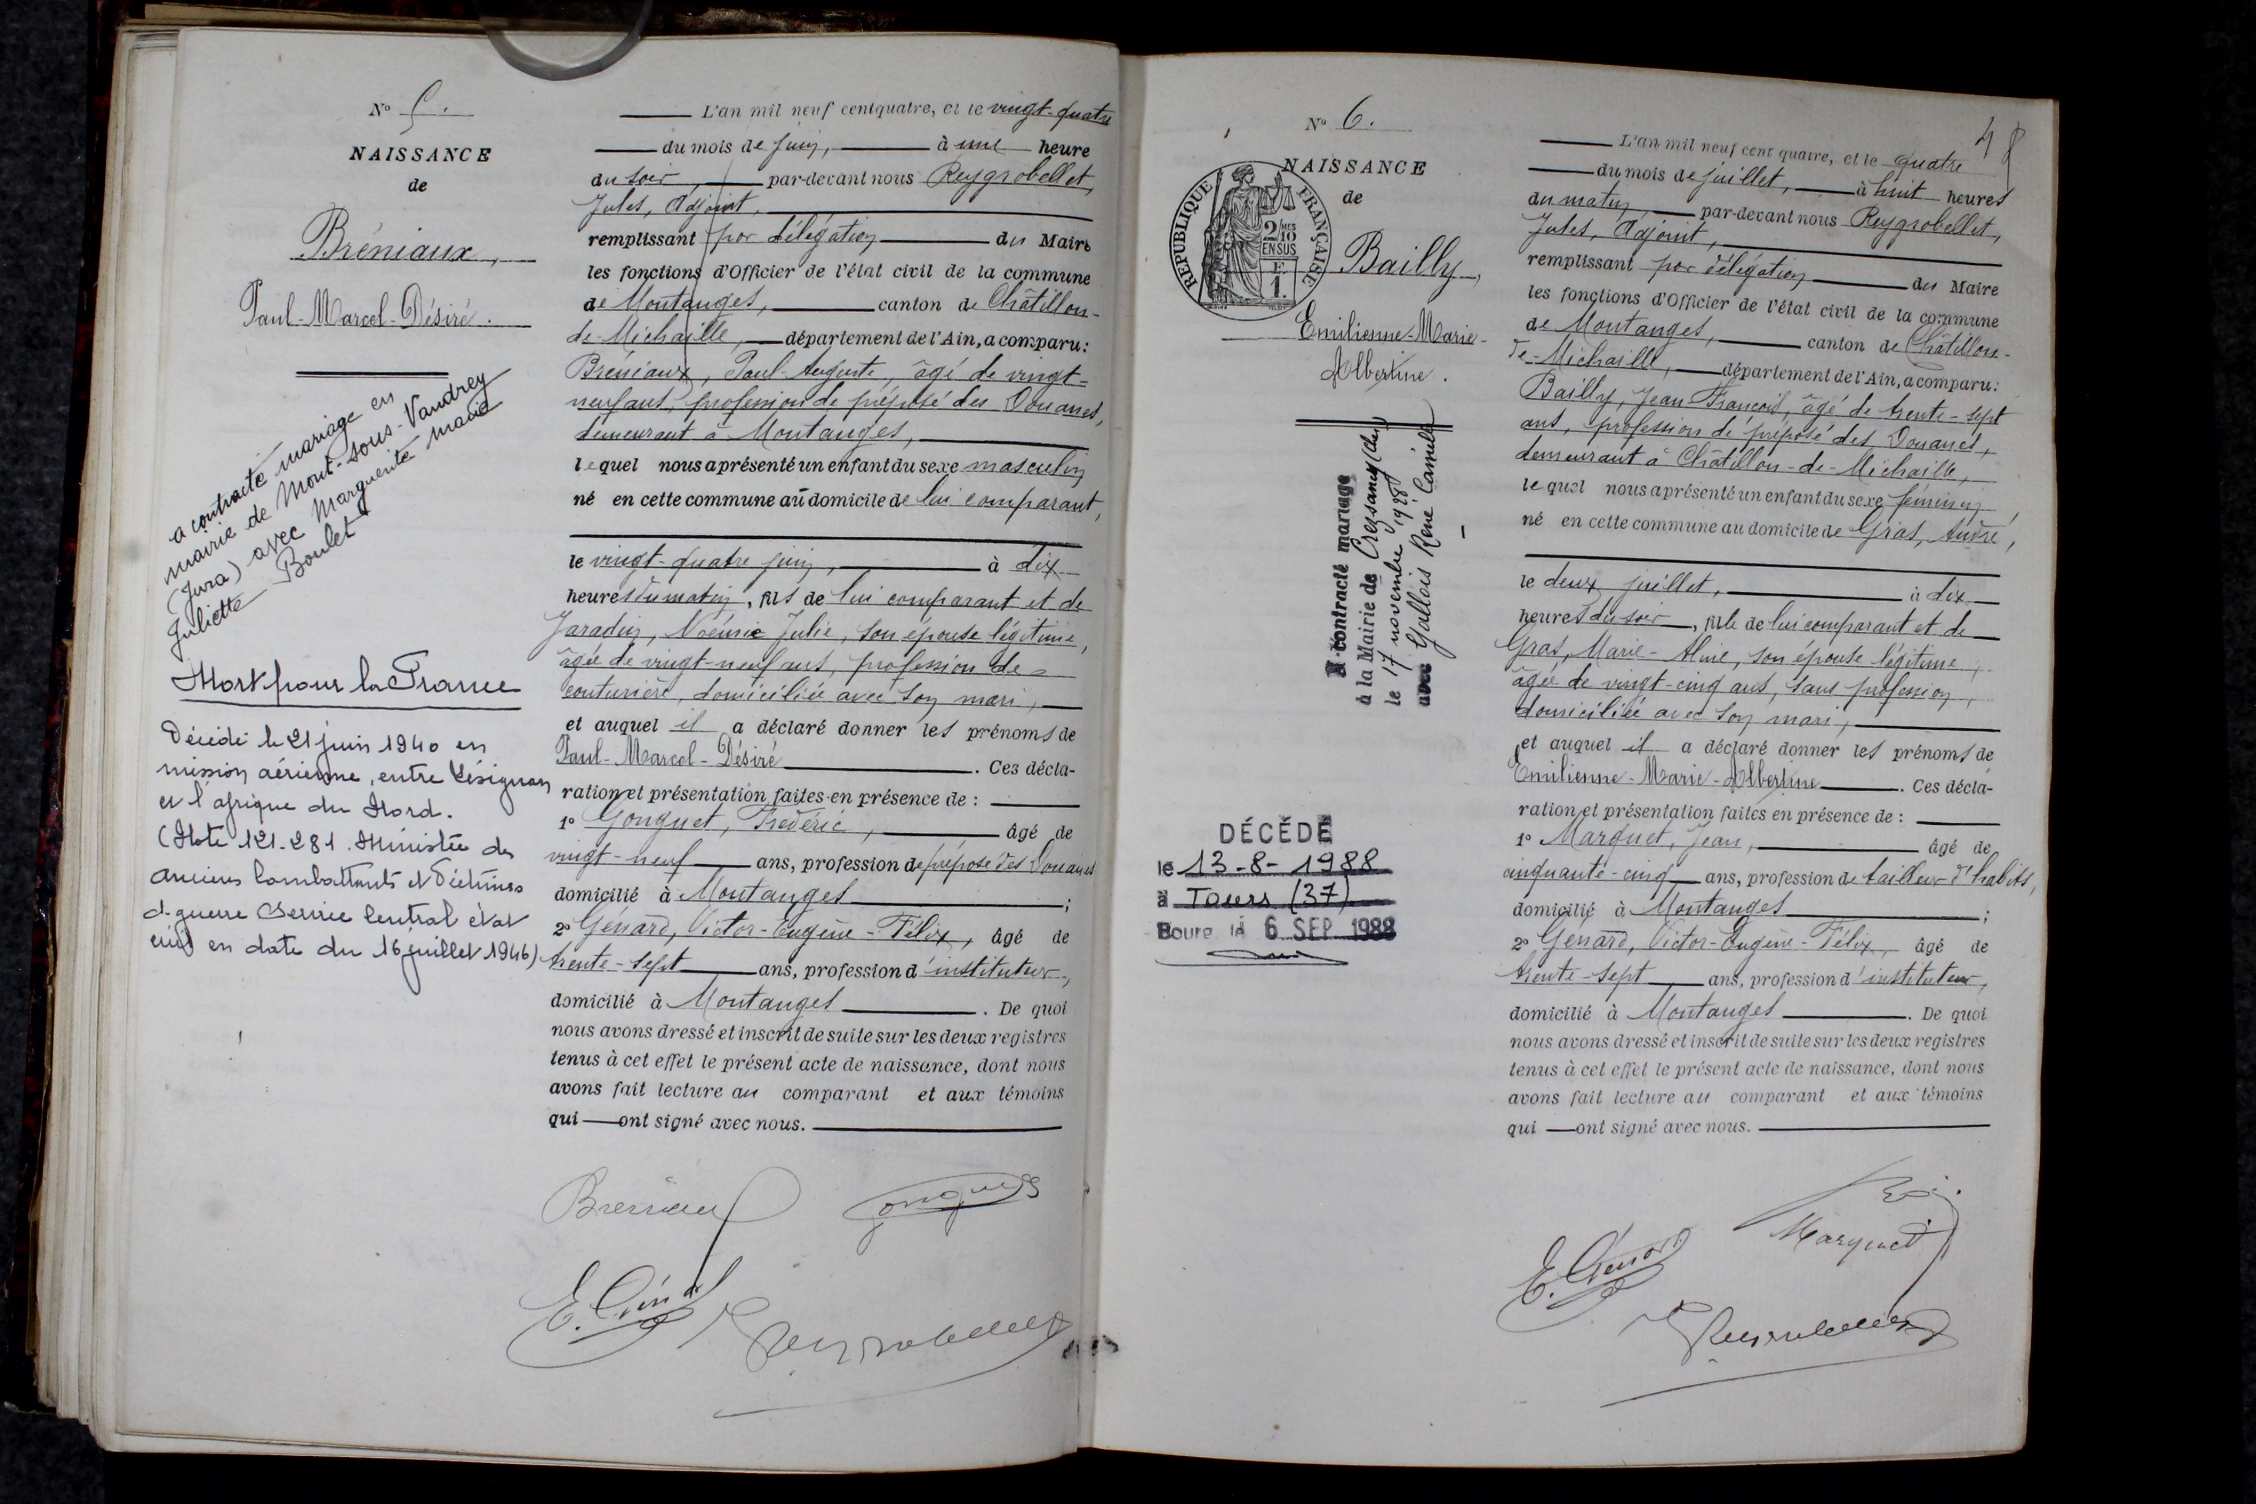 N° 5.
NAISSANCE
de
Bréniaux,
Paul-Marcel-Désiré.
a contracté mariage en
mairie de Mont-sous-Vaudrey
(Jura) avec Marguerite Marie
Juliette Boulet
Mort pour la France
Décédé le 21 juin 1940 en
mission aérienne, entre Lésignan
et l'afrique du Nord.
(Note 121-281. Ministère des
anciens Combattants et Victimes
d guerre Service Central état
civil en date du 16 juillet 1946)
L'an mil neuf cent quatre, et le vingt-quatre
du mois de juin, à une heure
du soir, par-devant nous Reygrobellet,
Jules, Adjoint,
remplissant par délégation du Maire
les fonctions d'Officier de l'état civil de la commune
de Montanges, canton de Châtillon-
de-Michaille, département de l'Ain, a comparu:
Bréniaux, Paul-Auguste, âgé de vingt-
neuf ans, profession de préposé des Douanes,
demeurant à Montanges,
lequel nous a présenté un enfant du sexe masculin
né en cette commune au domicile de lui comparant,
le vingt-quatre juin, à dix
heures du matin, fils de lui comparant et de
Jaradin, Noémie Julie, son épouse légitime,
âgée de vingt-neuf ans, profession de
couturière, domiciliée avec son mari,
et auquel il a déclaré donner les prénoms de
Paul-Marcel-Désiré. Ces décla-
ration et présentation faites en présence de :
1° Gonguet, Frédéric, âgé de
vingt-neuf ans, profession de préposé des Douanes
domicilié à Montanges ;
2° Génard, Victor-Eugène-Félix, âgé de
trente-sept ans, profession d'instituteur,
domicilié à Montanges. De quoi
nous avons dressé et inscrit de suite sur les deux registres
tenus à cet effet le présent acte de naissance, dont nous
avons fait lecture au comparant et aux témoins
qui ont signé avec nous.
Breniaux
Gonguet
E. Génard
Reygrobellet
48
N° 6.
NAISSANCE
de
RÉPUBLIQUE FRANÇAISE
2/10 MES
EN SUS
F
1.
Bailly,
Emilienne-Marie-
Albertine.
A contracté mariage
à la Mairie de Cressany (Cher)
le 17 novembre 1928
avec Gallois René Camille
DÉCÉDÉ
le 13-8-1988
à Tours (37)
Bourg le 6 SEP 1988
L'an mil neuf cent quatre, et le quatre
du mois de juillet, à huit heures
du matin, par-devant nous Reygrobellet,
Jules, Adjoint,
remplissant par délégation du Maire
les fonctions d'Officier de l'état civil de la commune
de Montanges, canton de Châtillon-
de-Michaille, département de l'Ain, a comparu:
Bailly, Jean François, âgé de trente-sept
ans, profession de préposé des Douanes,
demeurant à Châtillon-de-Michaille,
lequel nous a présenté un enfant du sexe féminin
né en cette commune au domicile de Gras, André,
le deux juillet, à dix
heures du soir, fille de lui comparant et de
Gras, Marie-Aline, son épouse légitime,
âgée de vingt-cinq ans, sans profession,
domiciliée avec son mari,
et auquel il a déclaré donner les prénoms de
Emilienne-Marie-Albertine. Ces décla-
ration et présentation faites en présence de :
1° Marquet, Jean, âgé de
cinquante-cinq ans, profession de tailleur d'habits,
domicilié à Montanges ;
2° Génard, Victor-Eugène-Félix, âgé de
trente-sept ans, profession d'instituteur,
domicilié à Montanges. De quoi
nous avons dressé et inscrit de suite sur les deux registres
tenus à cet effet le présent acte de naissance, dont nous
avons fait lecture au comparant et aux témoins
qui ont signé avec nous.
Marquet
E. Génard
Reygrobellet